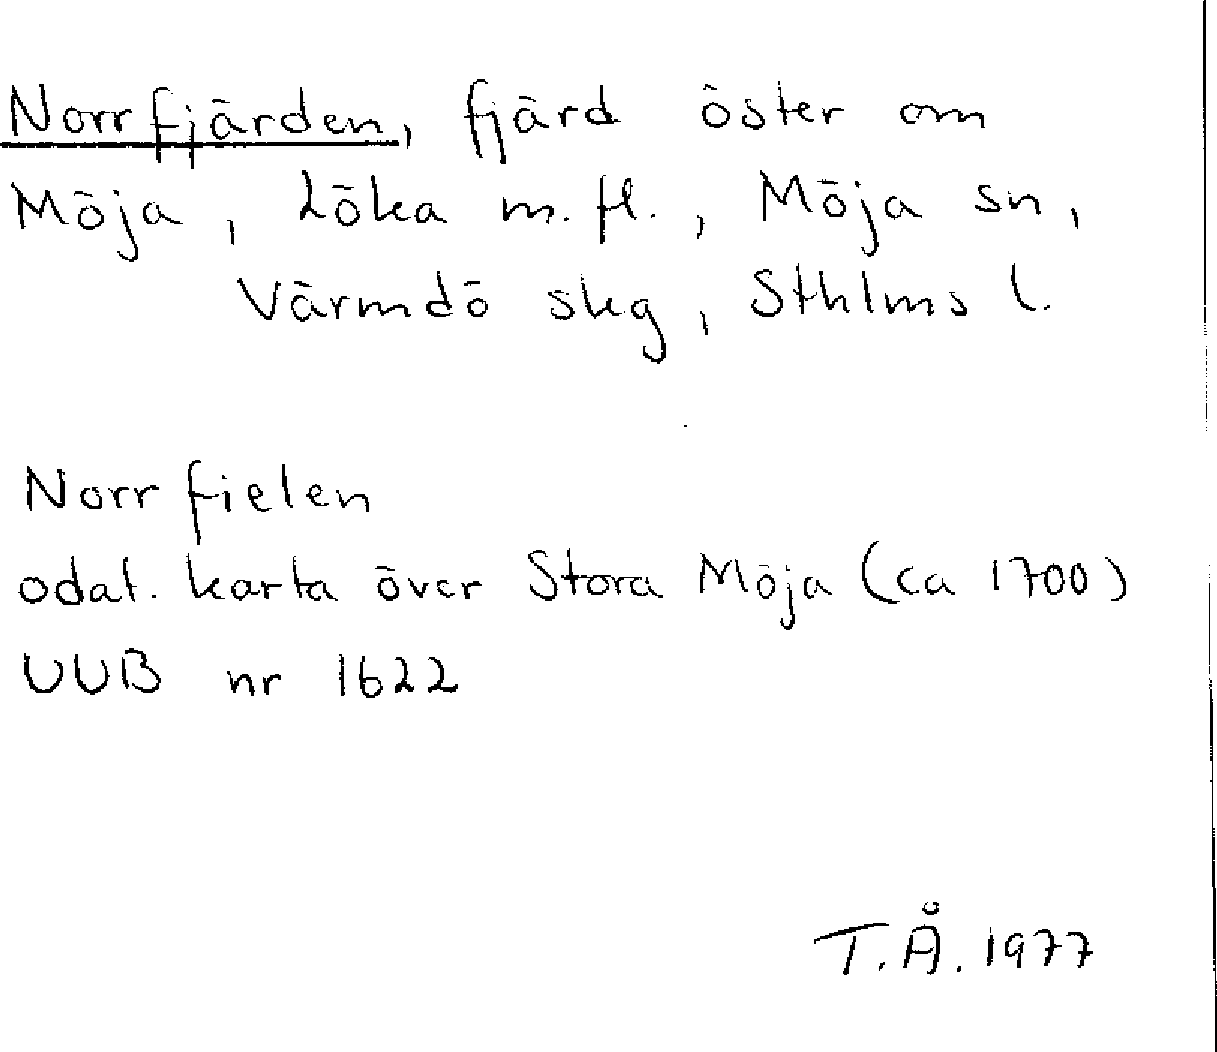 Norrfjärden, fjärd öster om
Möja, Löka m.fl., Möja sn,
Värmdö skg, Sthlms l.
Norrfielen
odat. karta över Stora Möja (ca 1700)
UUB nr 1622
T.Å. 1977